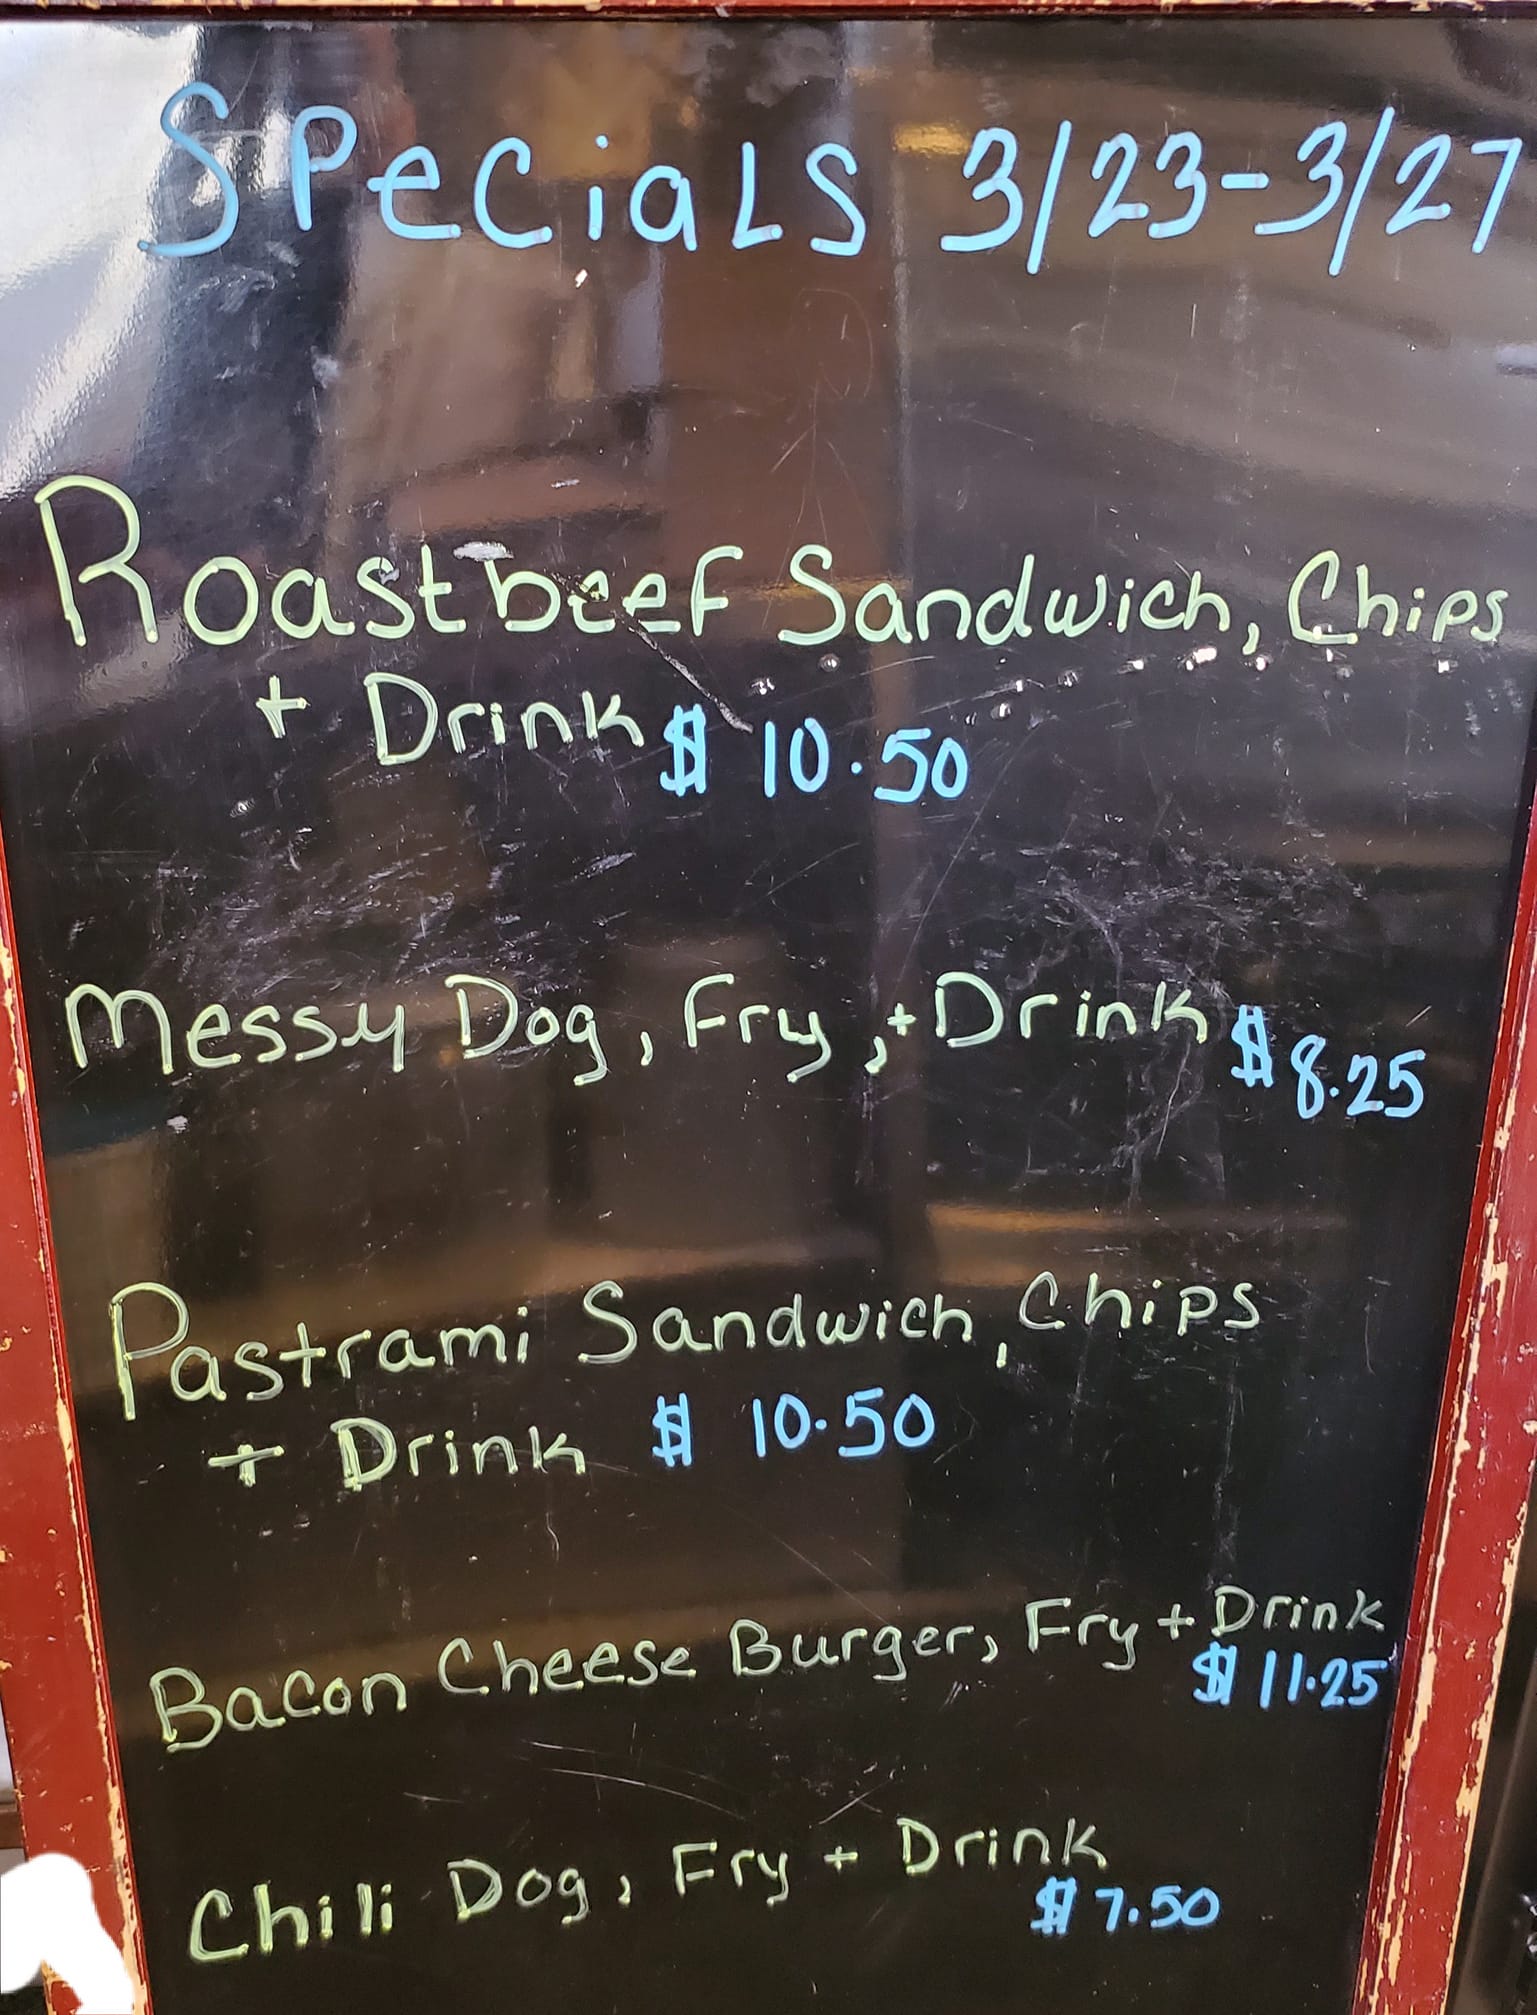 Specials 3/23-3/27
Roastbeef Sandwich, Chips
+ Drink $ 10.50
Messy Dog, Fry, + Drink $ 8.25
Pastrami Sandwich, Chips
+ Drink $ 10.50
Bacon Cheese Burger, Fry + Drink
$ 11.25
Chili Dog, Fry + Drink
$ 7.50